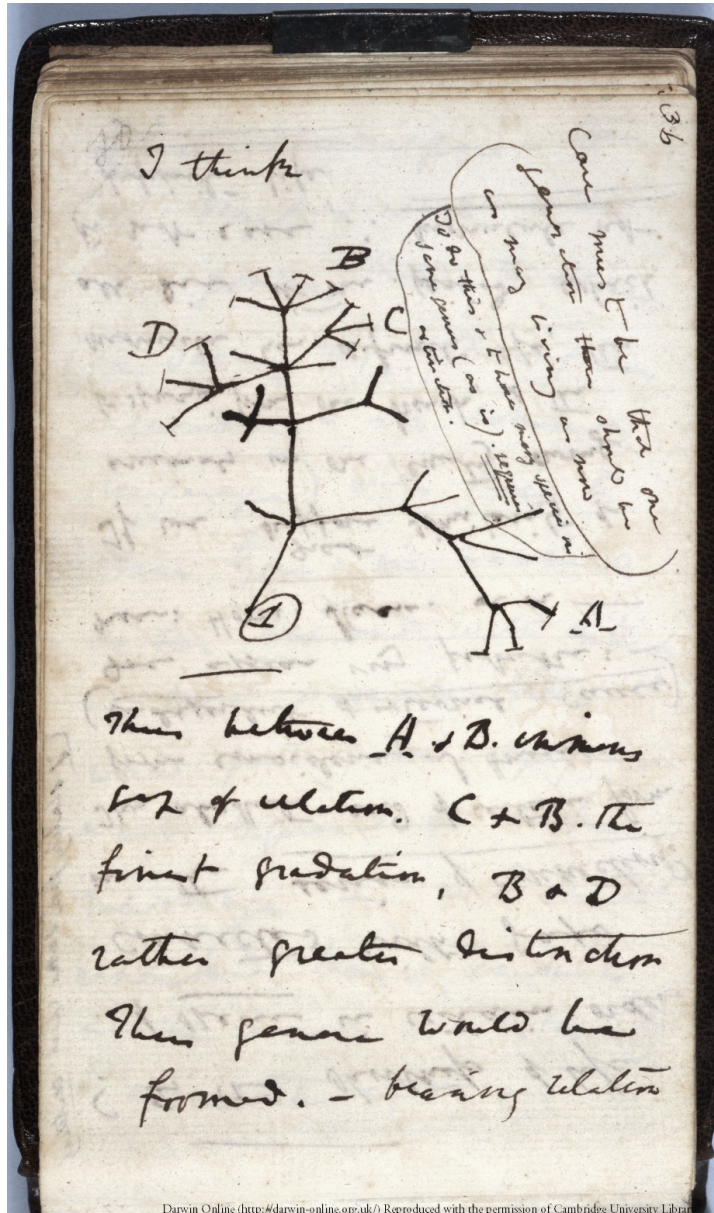 36
I think
Case must be that one
generation then should be
as many living as now
To do this & to have many species in
same genus (as is). requires
extinction.
B
C
D
1
A
Thus between A & B. immens
gap of relation. C & B. The
finest gradation, B & D
rather greater distinction
Thus genera would be
formed. — bearing relation
Darwin Online (http://darwin-online.org.uk/) Reproduced with the permission of Cambridge University Librar